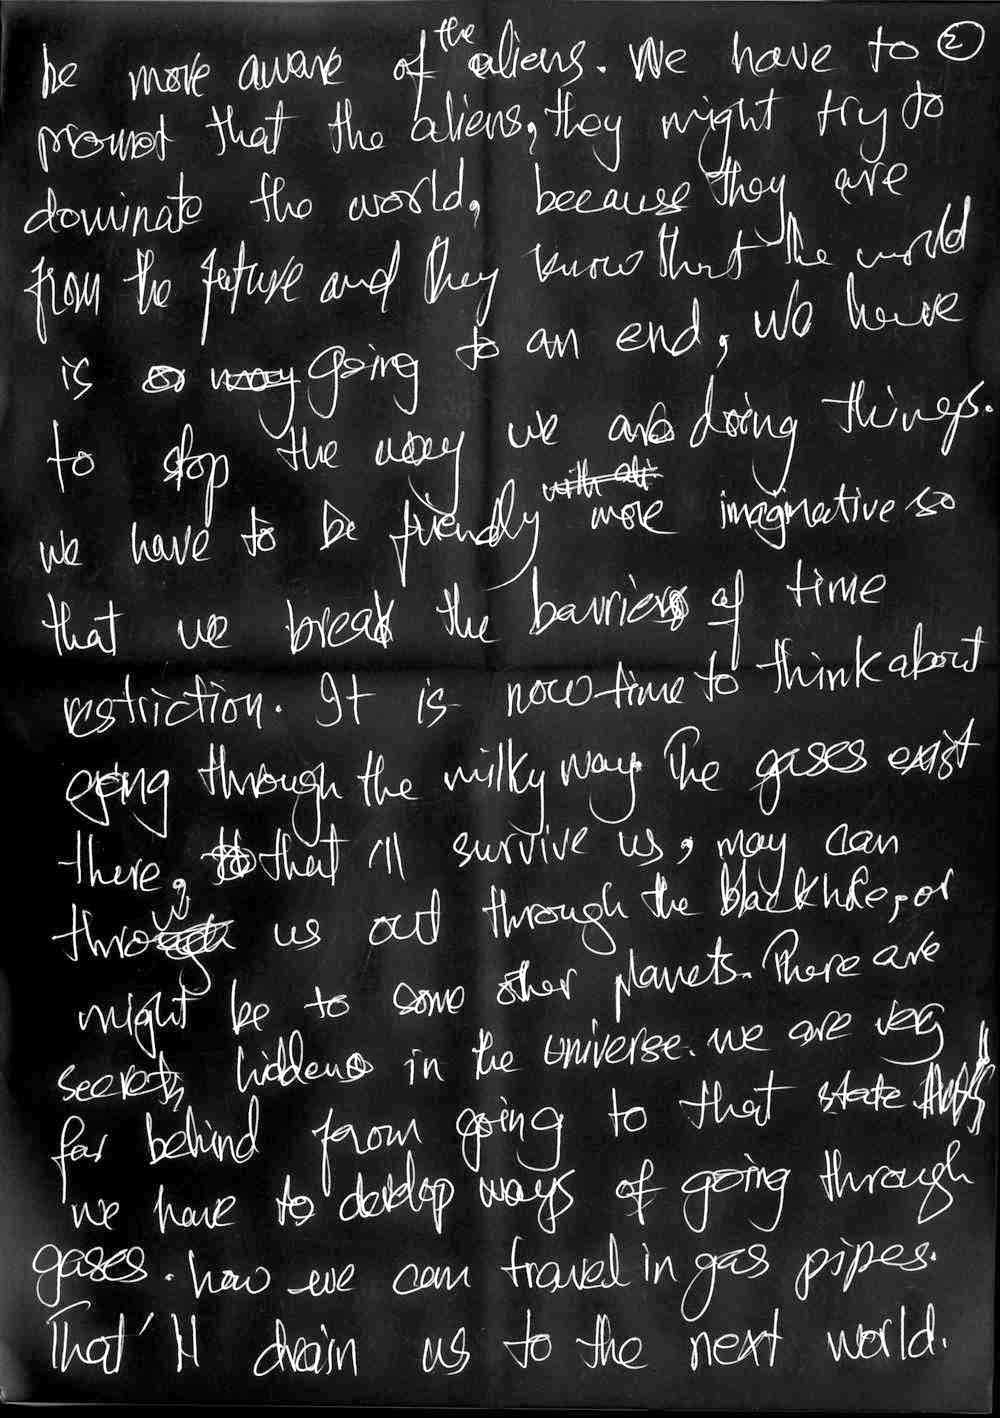 be more aware of the aliens. We have to ②
that the aliens, they might try to
dominate the world, because they are
from the future and they know that the world
is going to an end, we have
to stop the way we are doing things.
we have to be friendly more imaginative so
that we break the barriers of time
restriction. It is now time to think about
going through the milky way. The gases exist
there, that 'll survive us, may can
throw us out through the blackhole, or
might be to some other planets. There are
secrets hidden in the universe. we are very
far behind from going to that state
we have to develop ways of going through
gases. how we can travel in gas pipes.
That'll drain us to the next world.